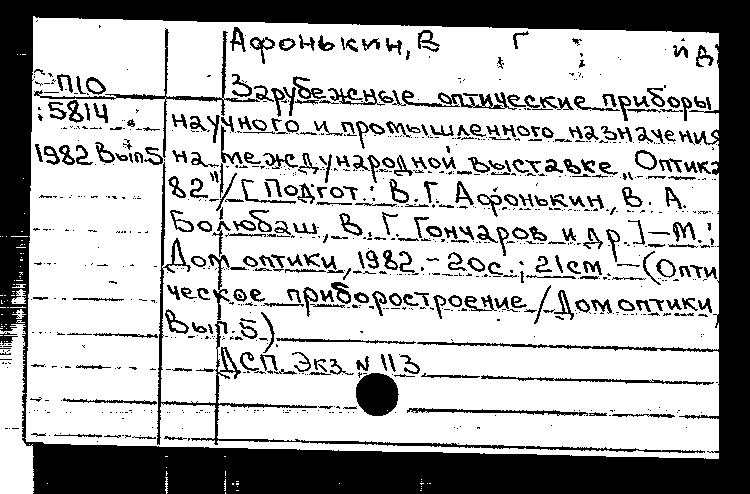 Афонькин, В Г и др
П10
5814
1982 Вып.5
Зарубежные оптические приборы
научного и промышленного назначения
на международной выставке „Оптика
82"/[Подгот.: В.Г. Афонькин, В. А.
Болюбаш, В. Г. Гончаров и др.]-М.:
Дом оптики, 1982.- 20с.; 21см.-(Опти
ческое приборостроение/Дом оптики,
Вып.5)
ДСП. Экз N 113